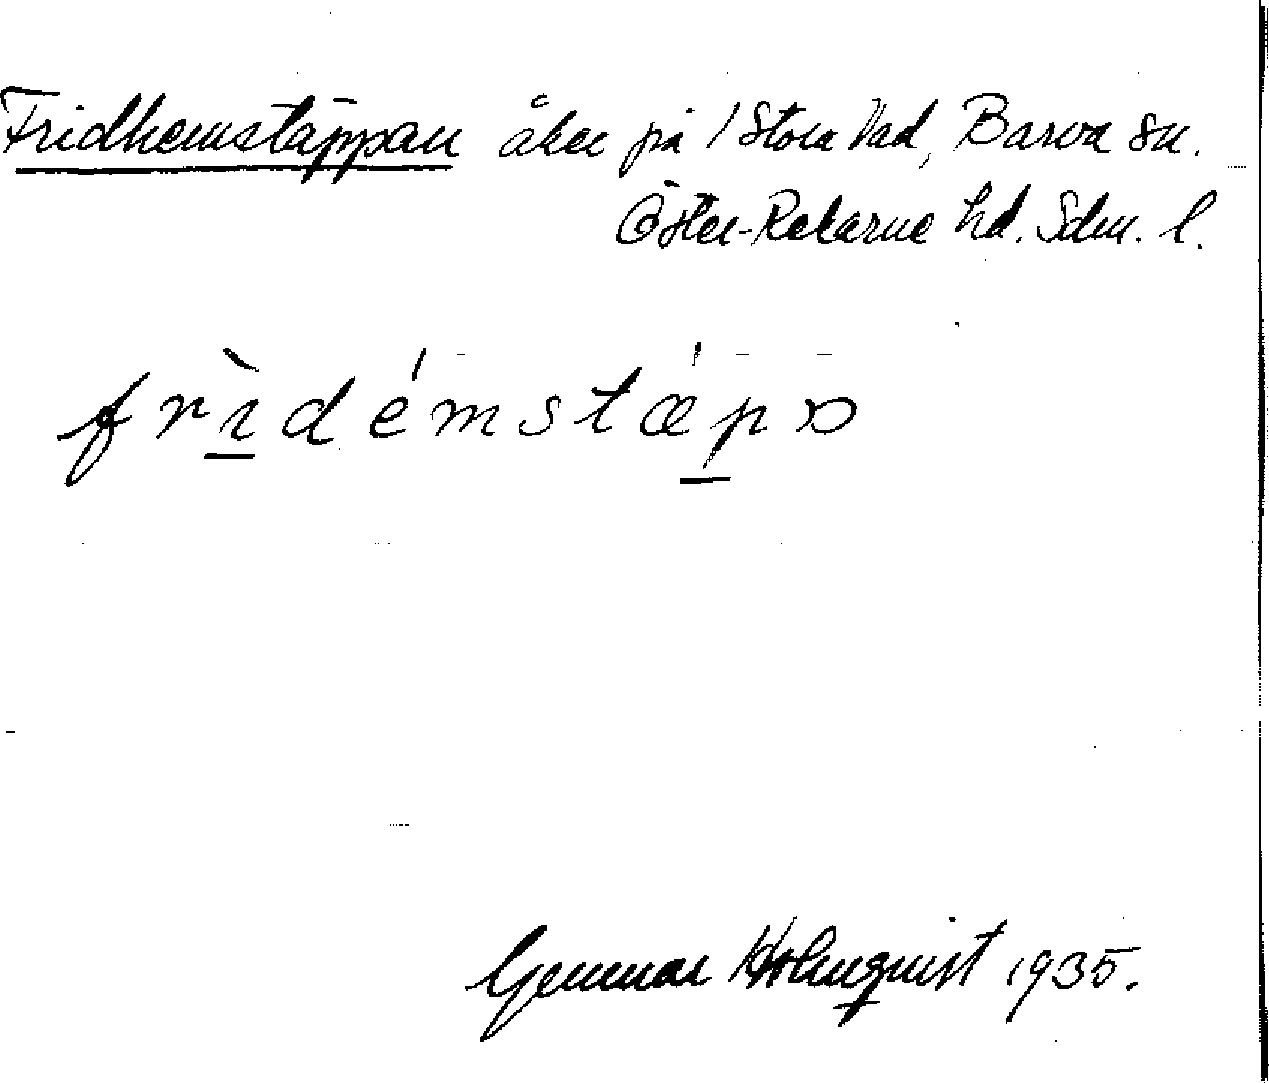 Fridhemstäppan åker på 1 Stora Vad, Barva sn.
Öster-Rekarne hd. Sdm. l.
frìdémstæpɔ
Gunnar Holmquist 1935.